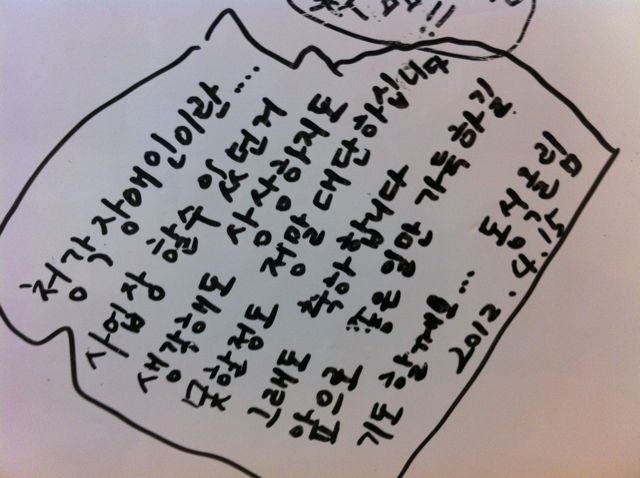 청각장애인이란....
사업장 할수 있던거
생각해도 상상하지도
못한정도 정말 대단하십니다
그래도 축하합니다
앞으로 좋은일만 가득하길
기도 할게요... 동석올림
2012.4.15